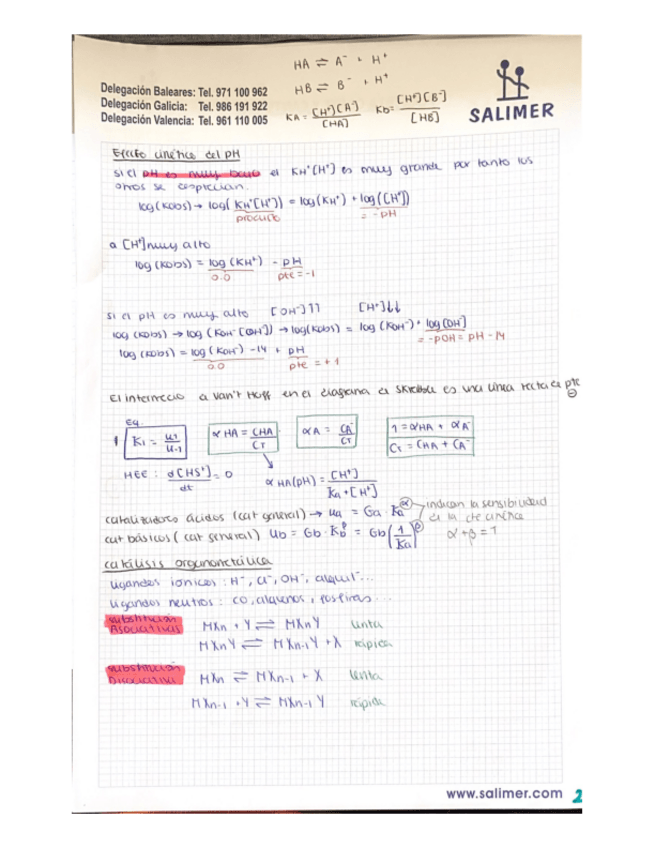 HA ⇌ A⁻ + H⁺
HB ⇌ B⁻ + H⁺
KA = [H⁺][A⁻] / [HA]
Kb = [H⁺][B⁻] / [HB]
Delegación Baleares: Tel. 971 100 962
Delegación Galicia: Tel. 986 191 922
Delegación Valencia: Tel. 961 110 005
SALIMER
Efecto cinético del pH
si el pH es muy bajo el KH⁺[H⁺] es muy grande por tanto los
otros se desprecian.
log(Kobs) → log(KH⁺[H⁺]) = log(KH⁺) + log([H⁺])
producto = -pH
a [H⁺] muy alto
log(Kobs) = log(KH⁺) - pH
0.0 pte = -1
si el pH es muy alto [OH⁻]↑↑ [H⁺]↓↓
log(Kobs) → log(KOH⁻[OH⁻]) → log(Kobs) = log(KOH⁻) + log[OH⁻]
= -pOH = pH - 14
log(Kobs) = log(KOH⁻) - 14 + pH
0.0 pte = +1
El intermedio a van't Hoff en el diagrama de Skrabal es una línea recta de pte ⊖
Eq.
1 K1 = u1 / u-1
αHA = CHA / CT
αA = CA⁻ / CT
1 = αHA + αA⁻
CT = CHA + CA⁻
HEE: d[HS⁺] / dt = 0
αHA(pH) = [H⁺] / Ka + [H⁺]
catalizadores ácidos (cat general) → ua = Ga · Ka^α indican la sensibilidad
de la cte cinética
cat básicos (cat general) ub = Gb · Kb^β = Gb(1/Ka)^β α + β = 1
catálisis organometálica
ligandos iónicos: H⁻, Cl⁻, OH⁻, alquil⁻...
ligandos neutros: CO, alquenos, fosfinas...
substitución
Asociativas
MXn + Y ⇌ MXnY lenta
MXnY ⇌ MXn-1Y + X rápida
substitución
Disociativa
MXn ⇌ MXn-1 + X lenta
MXn-1 + Y ⇌ MXn-1Y rápida
www.salimer.com 2